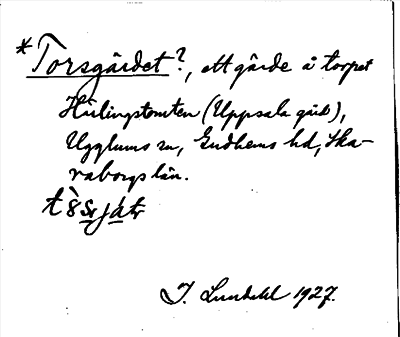 *Torsgärdet?, ett gärde å torpet
Hülingstomten (Uppsala gäld),
Ugglums sn, Gudhems hd, Ska-
raborgs län.
I. Lundahl 1927.